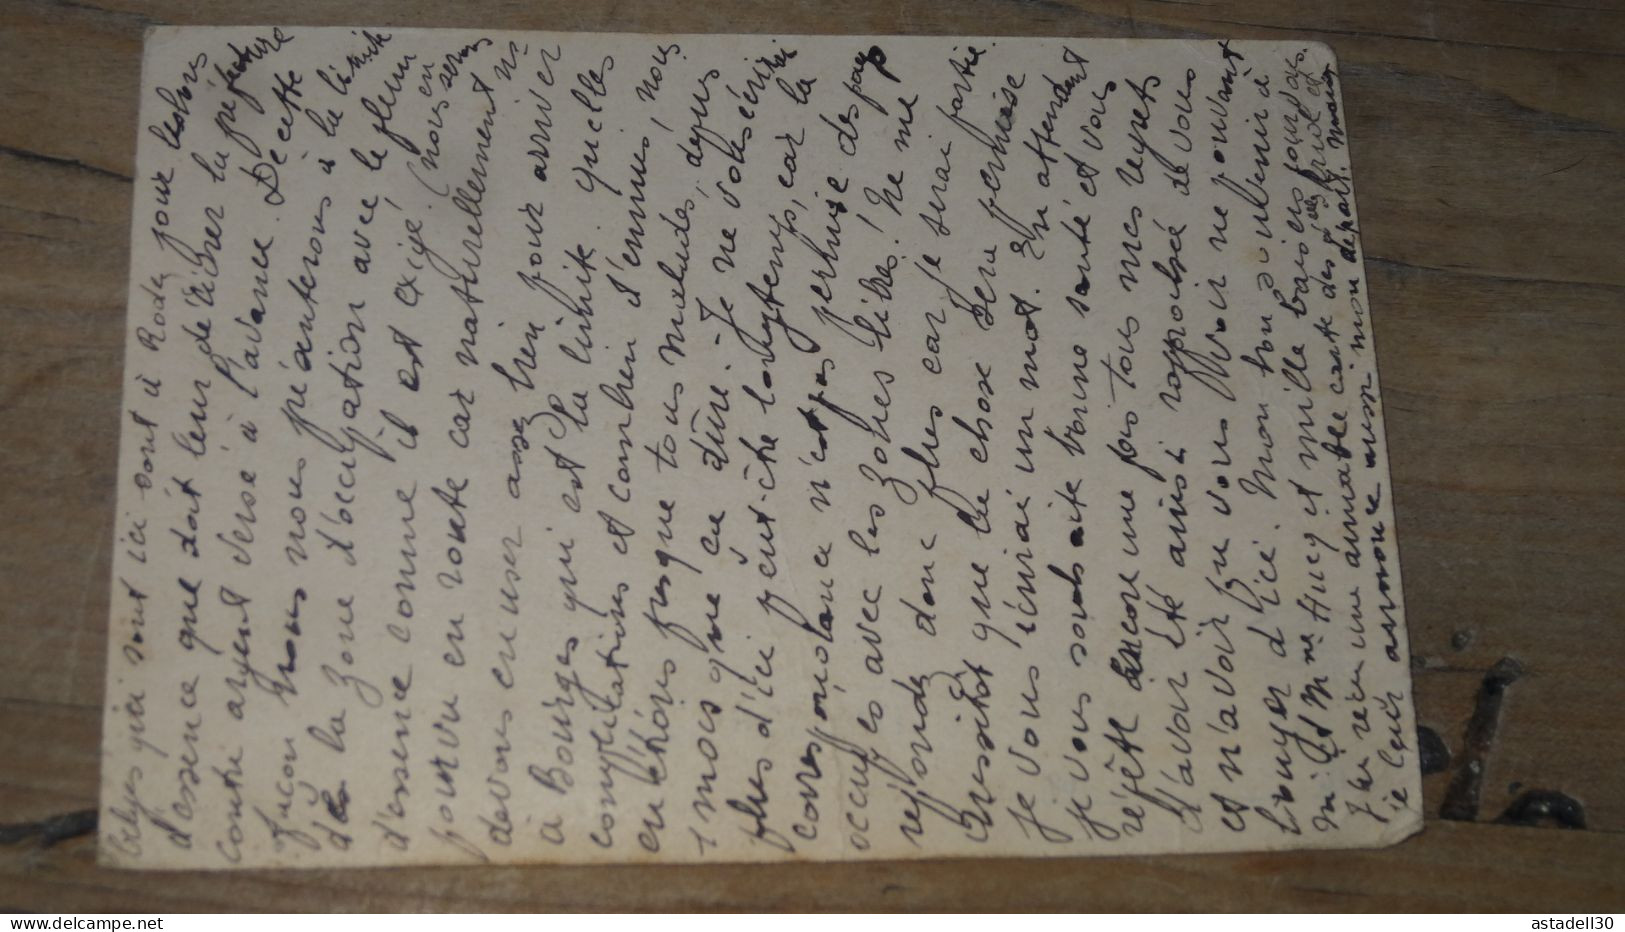 belges qui sont ici vont à Rodez pour les bons
d'essence que doit leur délivrer la préfecture
contre argent versé à l'avance. De cette
façon nous nous présenterons à la limite
de la zone d'occupation avec le plein
d'essence comme il est exigé. (nous en
pourvu en route car naturellement serons
devons creuser assez bien pour arriver
à Bourges qui est la limite. quelles
complications et combien d'ennuis, nous
en étions presque tous malades, depuis
1 mois que ça dure. Je ne vous écrirai
plus d'ici peut-être longtemps, car la
correspondance n'est pas permise des pays
occupés avec les zones libres! Ne me
réponds donc plus car je serai partie.
Aussitôt que la chose sera permise
je vous écrirai un mot. En attendant
je vous souhaite bonne santé et vous
répète encore une fois tous mes regrets
d'avoir été ainsi rapprochée de vous
et n'avoir pu vous revoir ne pouvant
bouger d'ici. Mon bon souvenir à
M. et Mme Hucq et mille baisers pour vous.
J'ai reçu une aimable carte des
je leur annonce aussi mon départ.
astadell30